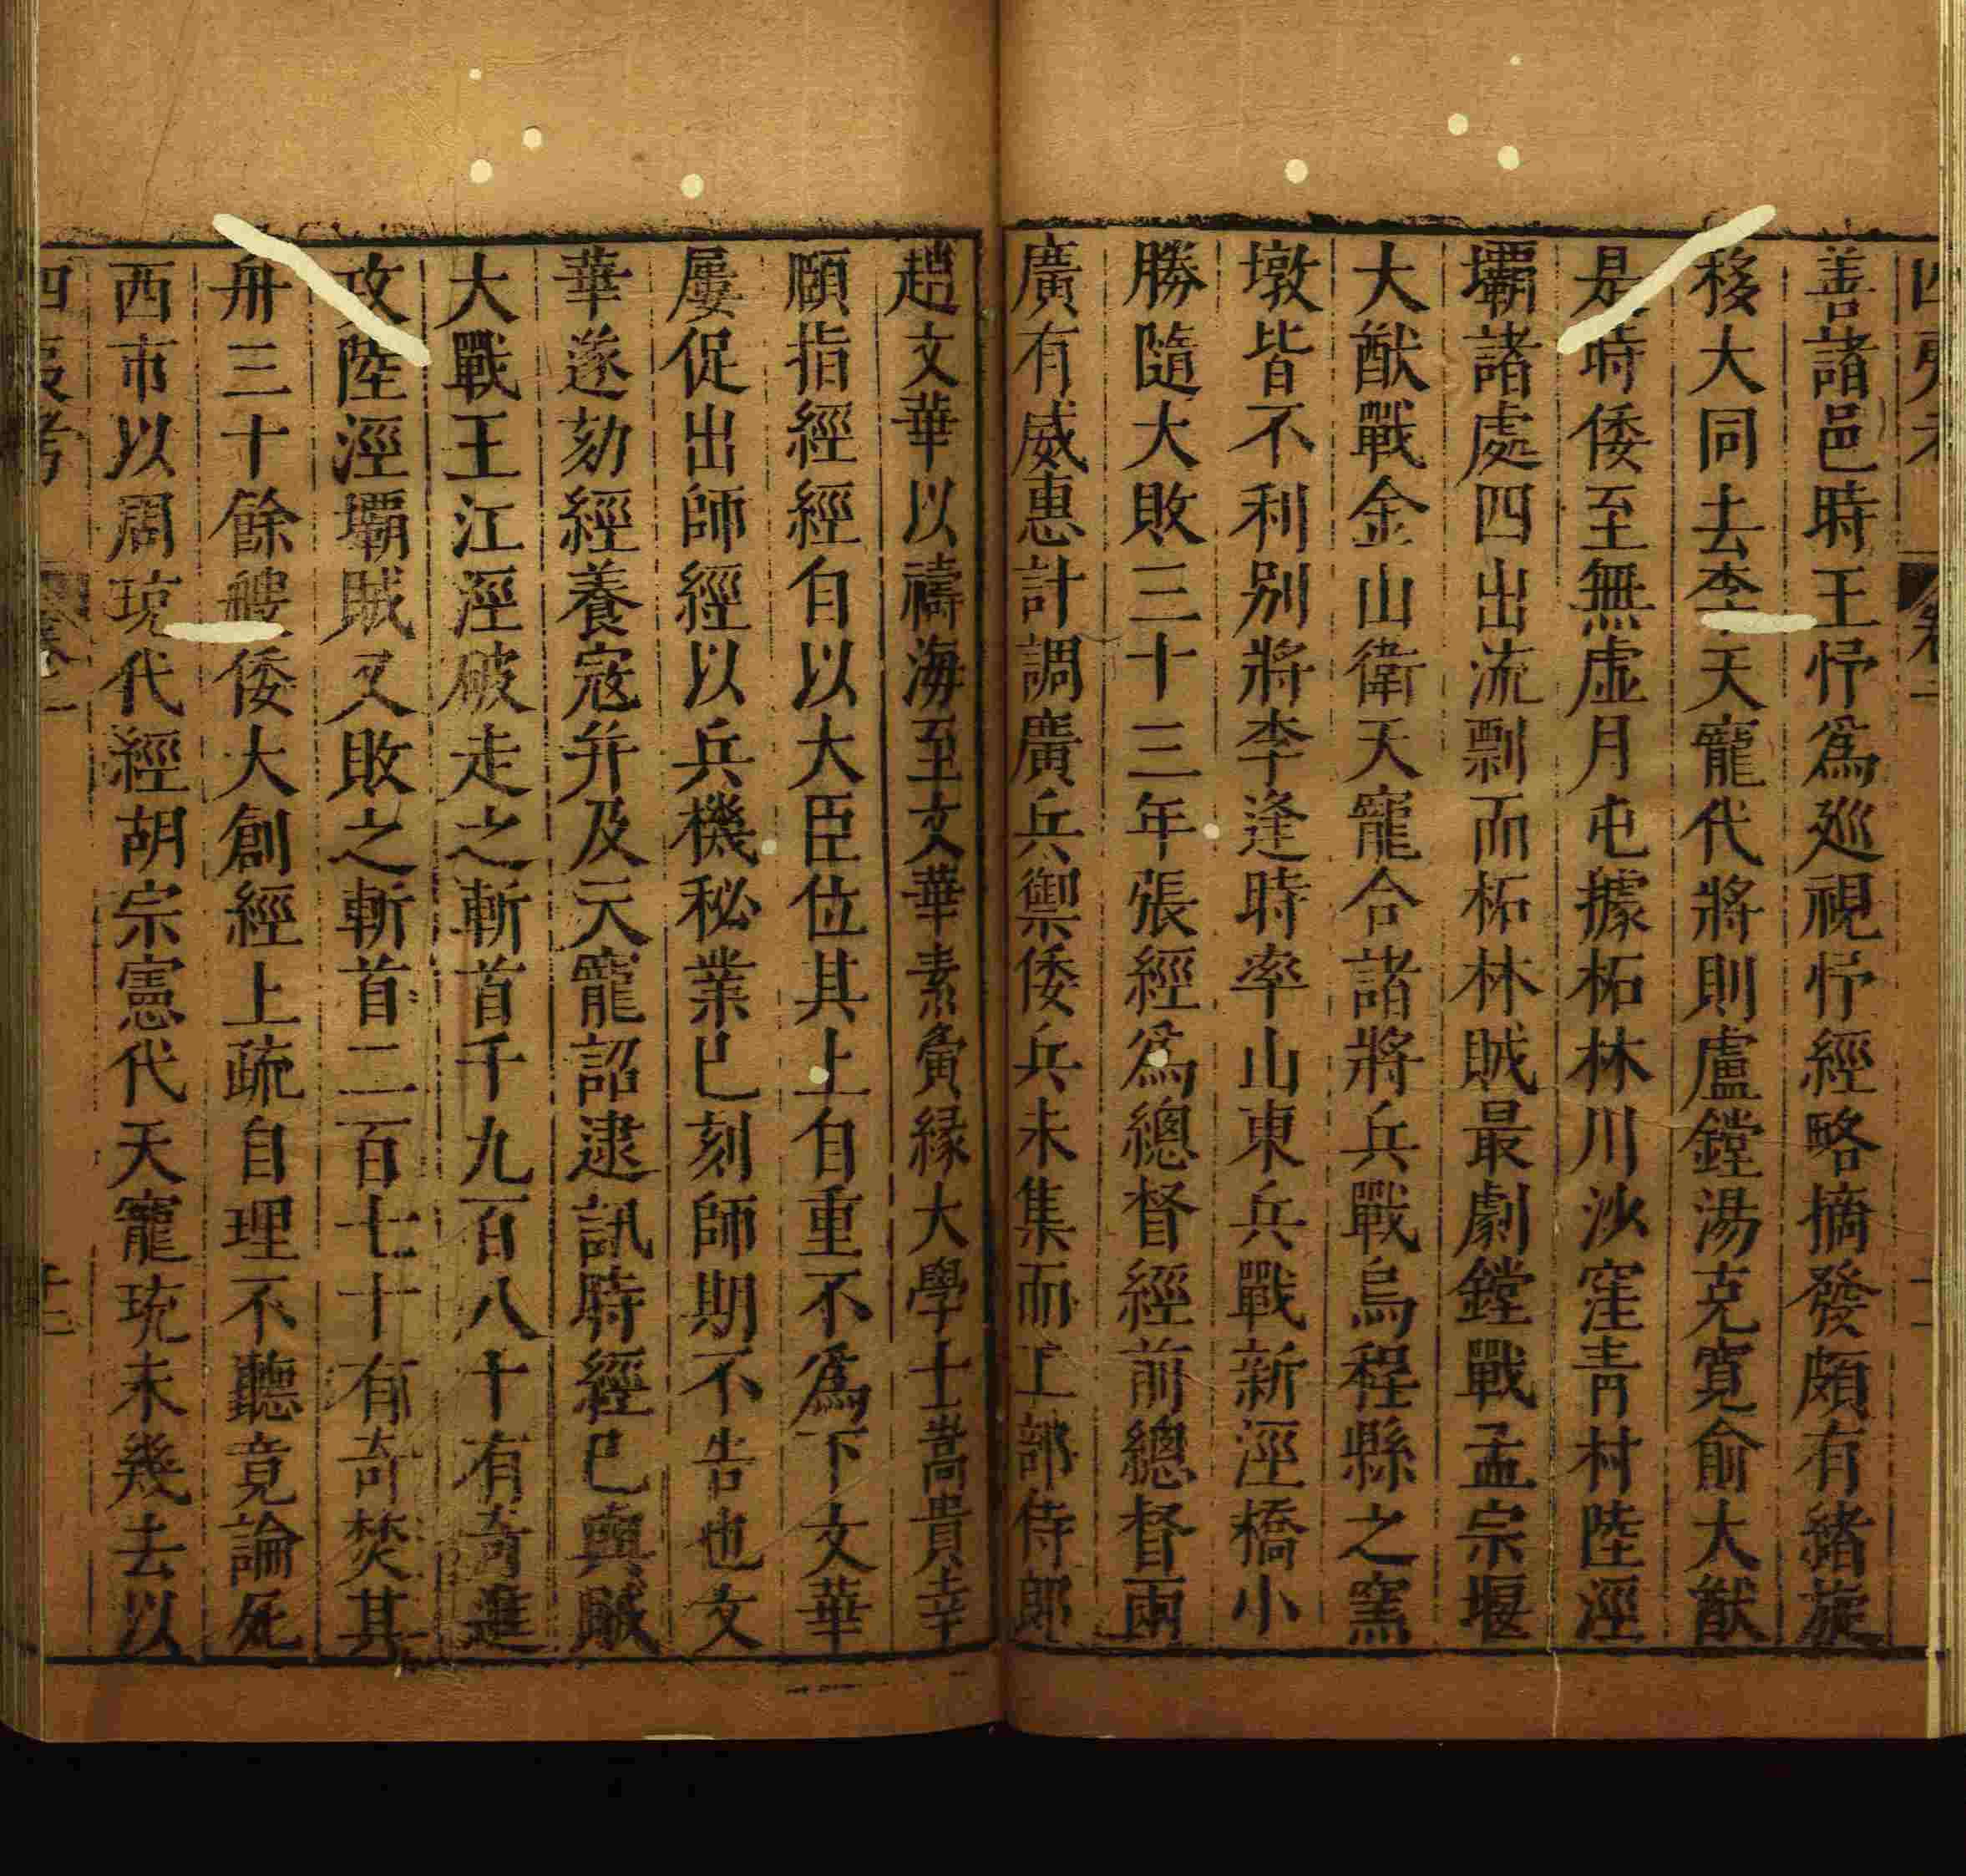 善諸邑時王忬爲廵視忬經略摘發頗有緒旋
移大同去李天寵代將則盧鏜湯克寬俞大猷
是時倭至無虚月屯據柘林川沙窪青村陸涇
壩諸處四出流剽而柘林賊最劇鏜戰孟宗堰
大猷戰金山衛天寵合諸將兵戰烏程縣之窯
墩皆不利别將李逢時率山東兵戰新涇橋小
勝隨大敗三十三年張經爲總督經前總督兩
廣有威惠計調廣兵禦倭兵未集而工部侍郎
趙文華以禱海至文華素夤縁大學士嵩貴幸
頤指經經自以大臣位其上自重不爲下文華
屢促出師經以兵機秘業已刻師期不告也文
華遂劾經養寇并及天寵詔逮訊時經已與賊
大戰王江涇破走之斬首千九百八十有奇進
攻陸涇壩賊又敗之斬首二百七十有奇焚其
舟三十餘艘倭大創經上疏自理不聽竟論死
西市以周琉代經胡宗憲代天寵琉未幾去以
四夷考 十二